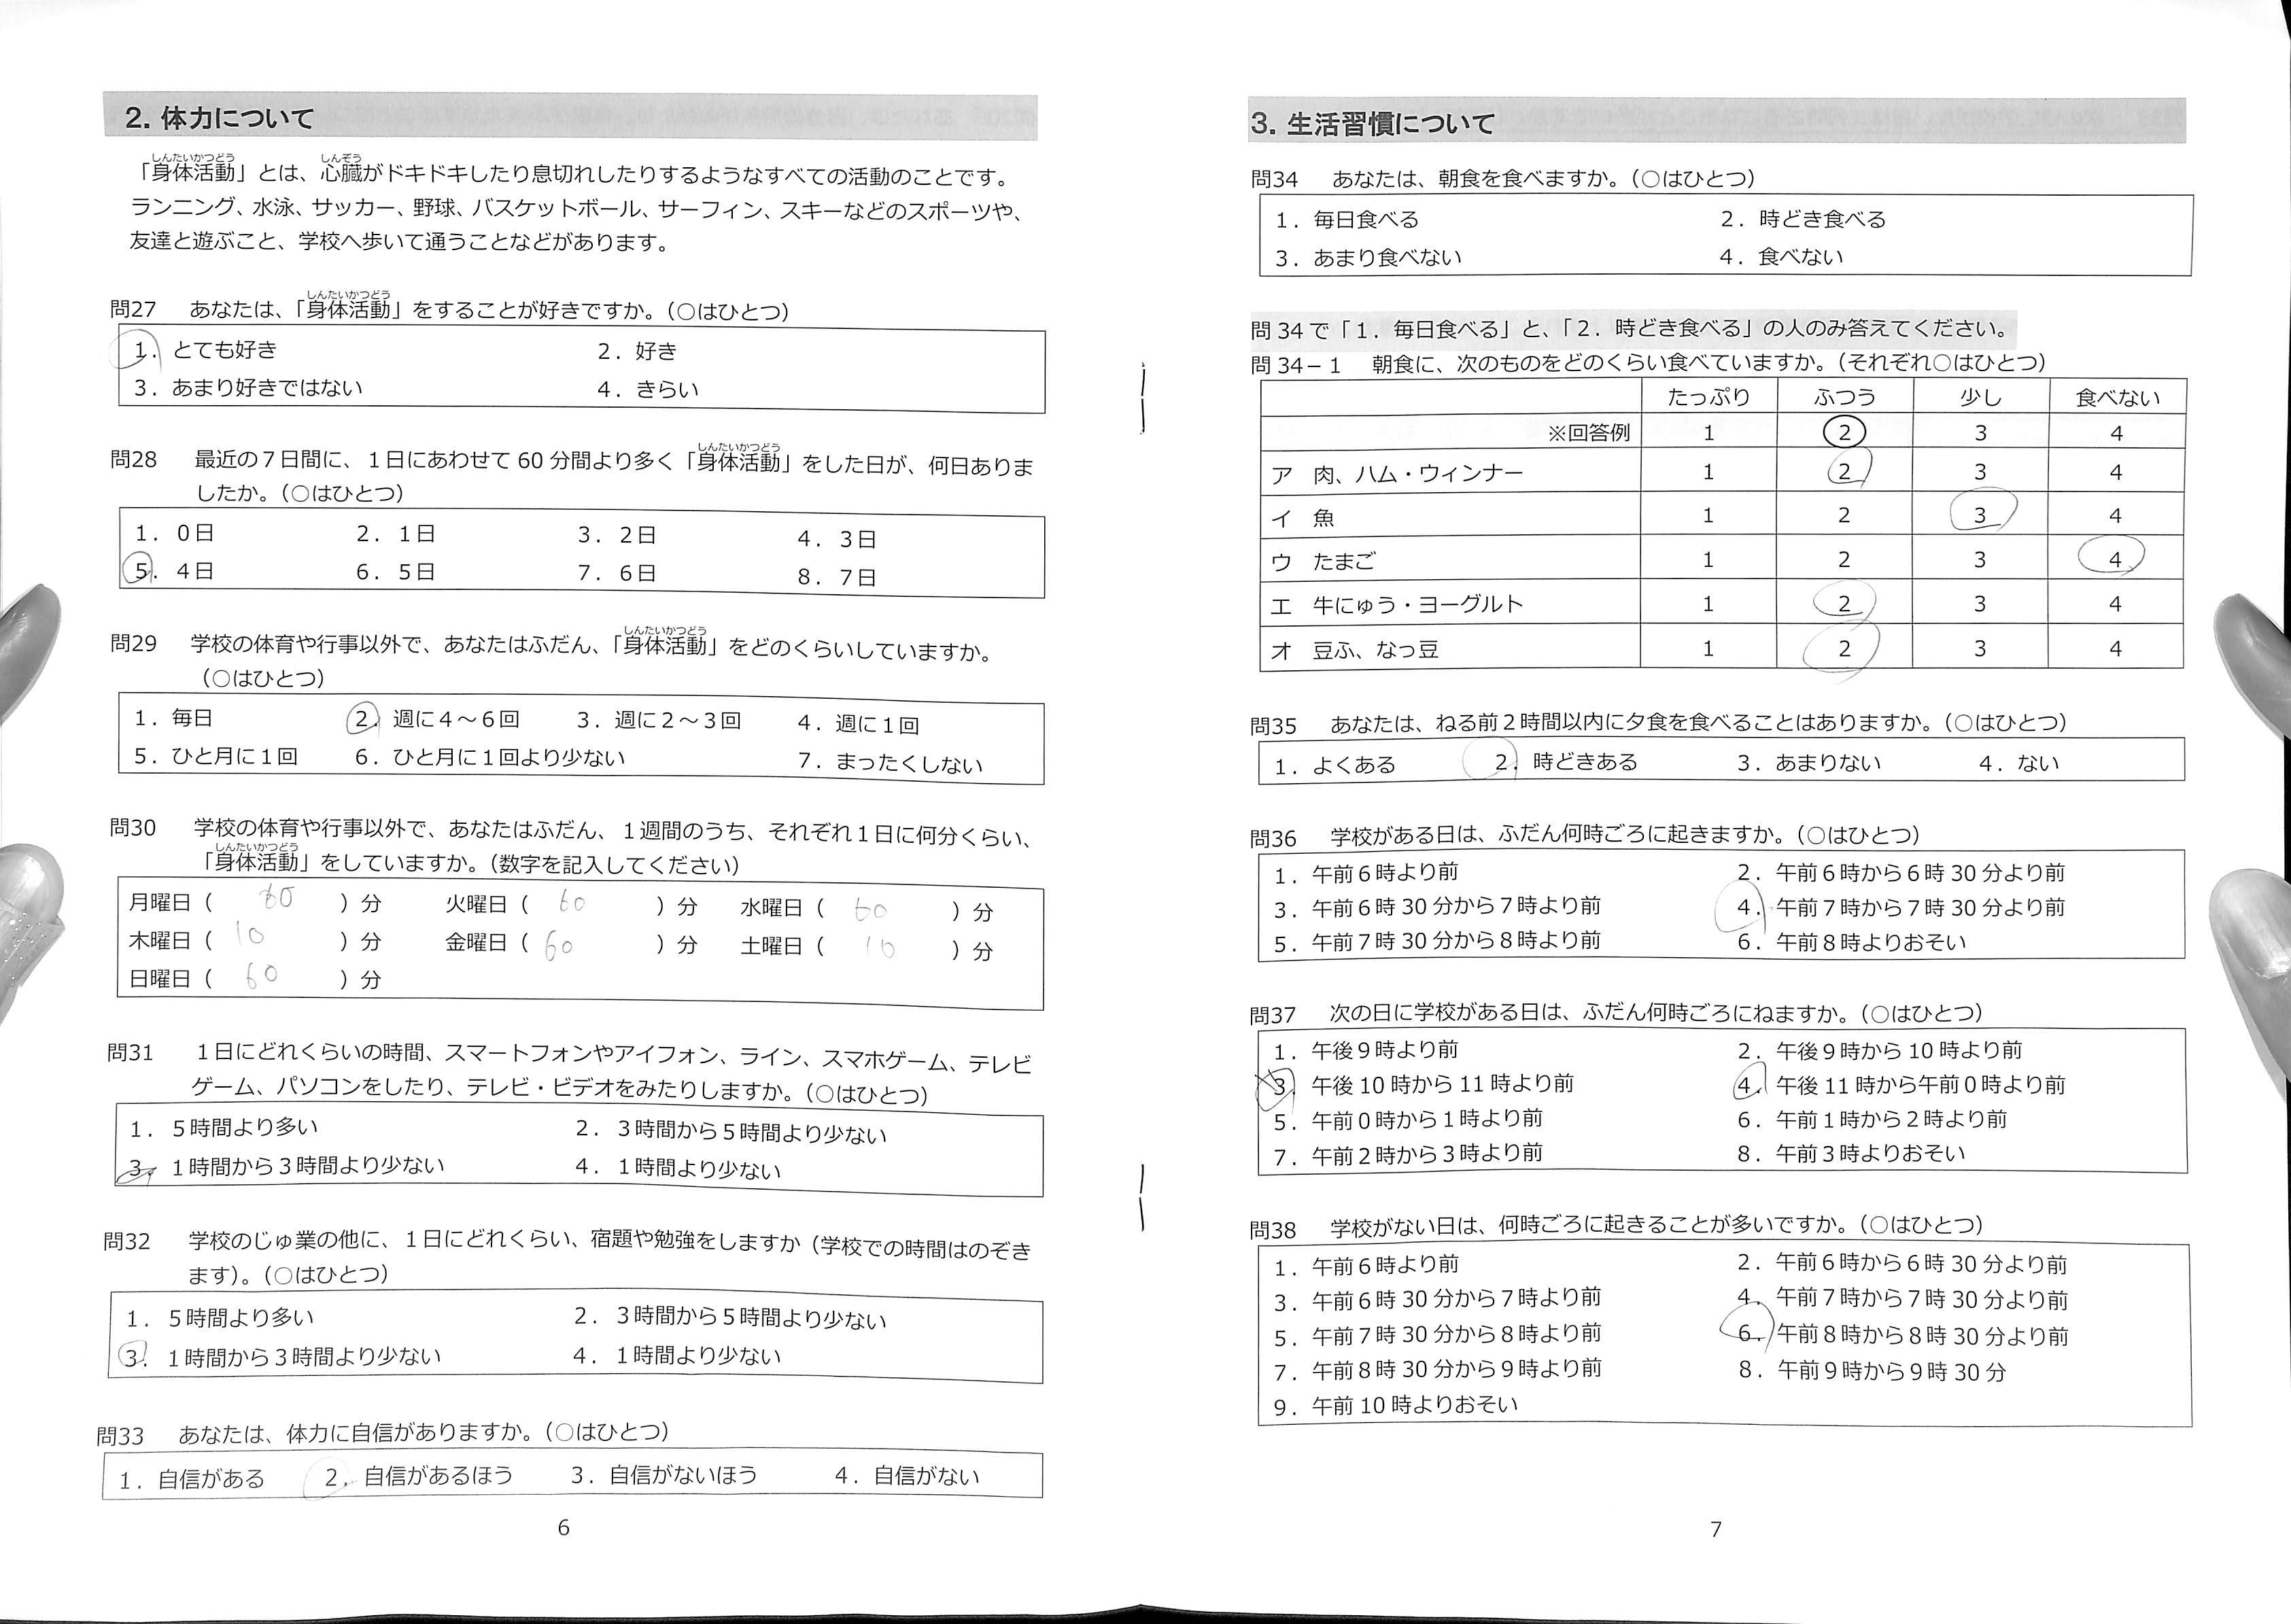 2. 体力について
「身体活動」とは、心臓がドキドキしたり息切れしたりするようなすべての活動のことです。
ランニング、水泳、サッカー、野球、バスケットボール、サーフィン、スキーなどのスポーツや、
友達と遊ぶこと、学校へ歩いて通うことなどがあります。
問27 あなたは、「身体活動」をすることが好きですか。（○はひとつ）
1．とても好き 2．好き
3．あまり好きではない 4．きらい
問28 最近の７日間に、１日にあわせて 60 分間より多く「身体活動」をした日が、何日ありま
したか。（○はひとつ）
1．０日 2．１日 3．２日 4．３日
5．４日 6．５日 7．６日 8．７日
問29 学校の体育や行事以外で、あなたはふだん、「身体活動」をどのくらいしていますか。
（○はひとつ）
1．毎日 2．週に４～６回 3．週に２～３回 4．週に１回
5．ひと月に１回 6．ひと月に１回より少ない 7．まったくしない
問30 学校の体育や行事以外で、あなたはふだん、１週間のうち、それぞれ１日に何分くらい、
「身体活動」をしていますか。（数字を記入してください）
月曜日（ 60 ）分 火曜日（ 60 ）分 水曜日（ 60 ）分
木曜日（ 10 ）分 金曜日（ 60 ）分 土曜日（ 10 ）分
日曜日（ 60 ）分
問31 １日にどれくらいの時間、スマートフォンやアイフォン、ライン、スマホゲーム、テレビ
ゲーム、パソコンをしたり、テレビ・ビデオをみたりしますか。（○はひとつ）
1．５時間より多い 2．３時間から５時間より少ない
3．１時間から３時間より少ない 4．１時間より少ない
問32 学校のじゅ業の他に、１日にどれくらい、宿題や勉強をしますか（学校での時間はのぞき
ます）。（○はひとつ）
1．５時間より多い 2．３時間から５時間より少ない
3．１時間から３時間より少ない 4．１時間より少ない
問33 あなたは、体力に自信がありますか。（○はひとつ）
1．自信がある 2．自信があるほう 3．自信がないほう 4．自信がない
6
3. 生活習慣について
問34 あなたは、朝食を食べますか。（○はひとつ）
1．毎日食べる 2．時どき食べる
3．あまり食べない 4．食べない
問 34 で「１．毎日食べる」と、「２．時どき食べる」の人のみ答えてください。
問 34－１ 朝食に、次のものをどのくらい食べていますか。（それぞれ○はひとつ）
たっぷり ふつう 少し 食べない
※回答例 1 2 3 4
ア 肉、ハム・ウィンナー 1 2 3 4
イ 魚 1 2 3 4
ウ たまご 1 2 3 4
エ 牛にゅう・ヨーグルト 1 2 3 4
オ 豆ふ、なっ豆 1 2 3 4
問35 あなたは、ねる前２時間以内に夕食を食べることはありますか。（○はひとつ）
1．よくある 2．時どきある 3．あまりない 4．ない
問36 学校がある日は、ふだん何時ごろに起きますか。（○はひとつ）
1．午前６時より前 2．午前６時から６時 30 分より前
3．午前６時 30 分から７時より前 4．午前７時から７時 30 分より前
5．午前７時 30 分から８時より前 6．午前８時よりおそい
問37 次の日に学校がある日は、ふだん何時ごろにねますか。（○はひとつ）
1．午後９時より前 2．午後９時から 10 時より前
3．午後 10 時から 11 時より前 4．午後 11 時から午前０時より前
5．午前０時から１時より前 6．午前１時から２時より前
7．午前２時から３時より前 8．午前３時よりおそい
問38 学校がない日は、何時ごろに起きることが多いですか。（○はひとつ）
1．午前６時より前 2．午前６時から６時 30 分より前
3．午前６時 30 分から７時より前 4．午前７時から７時 30 分より前
5．午前７時 30 分から８時より前 6．午前８時から８時 30 分より前
7．午前８時 30 分から９時より前 8．午前９時から９時 30 分
9．午前 10 時よりおそい
7